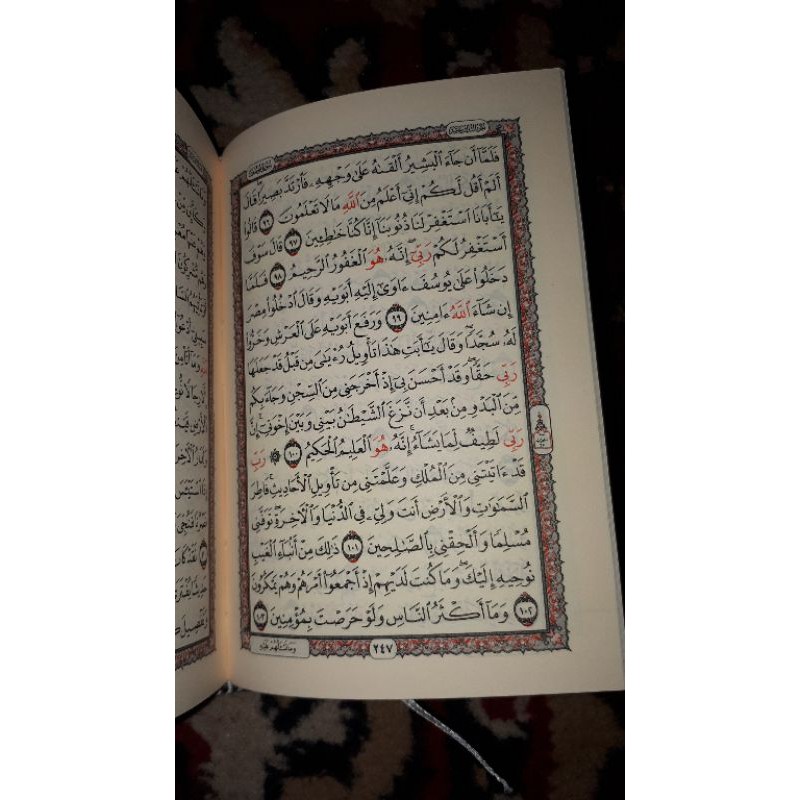 فَلَمَّا أَن جَاءَ الْبَشِيرُ أَلْقَىٰهُ عَلَىٰ وَجْهِهِۦ فَارْتَدَّ بَصِيرًا ۖ قَالَ
أَلَمْ أَقُل لَّكُمْ إِنِّي أَعْلَمُ مِنَ اللَّهِ مَا لَا تَعْلَمُونَ ٩٦ قَالُوا
يَٰٓأَبَانَا اسْتَغْفِرْ لَنَا ذُنُوبَنَا إِنَّا كُنَّا خَٰطِـِٔينَ ٩٧ قَالَ سَوْفَ
أَسْتَغْفِرُ لَكُمْ رَبِّيٓ ۖ إِنَّهُۥ هُوَ الْغَفُورُ الرَّحِيمُ ٩٨ فَلَمَّا
دَخَلُوا عَلَىٰ يُوسُفَ ءَاوَىٰٓ إِلَيْهِ أَبَوَيْهِ وَقَالَ ادْخُلُوا مِصْرَ
إِن شَآءَ اللَّهُ ءَامِنِينَ ٩٩ وَرَفَعَ أَبَوَيْهِ عَلَى الْعَرْشِ وَخَرُّوا
لَهُۥ سُجَّدًا ۖ وَقَالَ يَٰٓأَبَتِ هَٰذَا تَأْوِيلُ رُءْيَٰيَ مِن قَبْلُ قَدْ جَعَلَهَا
رَبِّي حَقًّا ۖ وَقَدْ أَحْسَنَ بِيٓ إِذْ أَخْرَجَنِي مِنَ السِّجْنِ وَجَآءَ بِكُم
مِّنَ الْبَدْوِ مِنۢ بَعْدِ أَن نَّزَغَ الشَّيْطَٰنُ بَيْنِي وَبَيْنَ إِخْوَتِيٓ ۚ إِنَّ
رَبِّي لَطِيفٌ لِّمَا يَشَآءُ ۚ إِنَّهُۥ هُوَ الْعَلِيمُ الْحَكِيمُ ١٠٠ ۞ رَبِّ
قَدْ ءَاتَيْتَنِي مِنَ الْمُلْكِ وَعَلَّمْتَنِي مِن تَأْوِيلِ الْأَحَادِيثِ ۚ فَاطِرَ
السَّمَٰوَٰتِ وَالْأَرْضِ أَنتَ وَلِيِّۦ فِي الدُّنْيَا وَالْآخِرَةِ ۖ تَوَفَّنِي
مُسْلِمًا وَأَلْحِقْنِي بِالصَّٰلِحِينَ ١٠١ ذَٰلِكَ مِنْ أَنۢبَآءِ الْغَيْبِ
نُوحِيهِ إِلَيْكَ ۖ وَمَا كُنتَ لَدَيْهِمْ إِذْ أَجْمَعُوٓا أَمْرَهُمْ وَهُمْ يَمْكُرُونَ
١٠٢ وَمَآ أَكْثَرُ النَّاسِ وَلَوْ حَرَصْتَ بِمُؤْمِنِينَ ١٠٣
٢٤٧